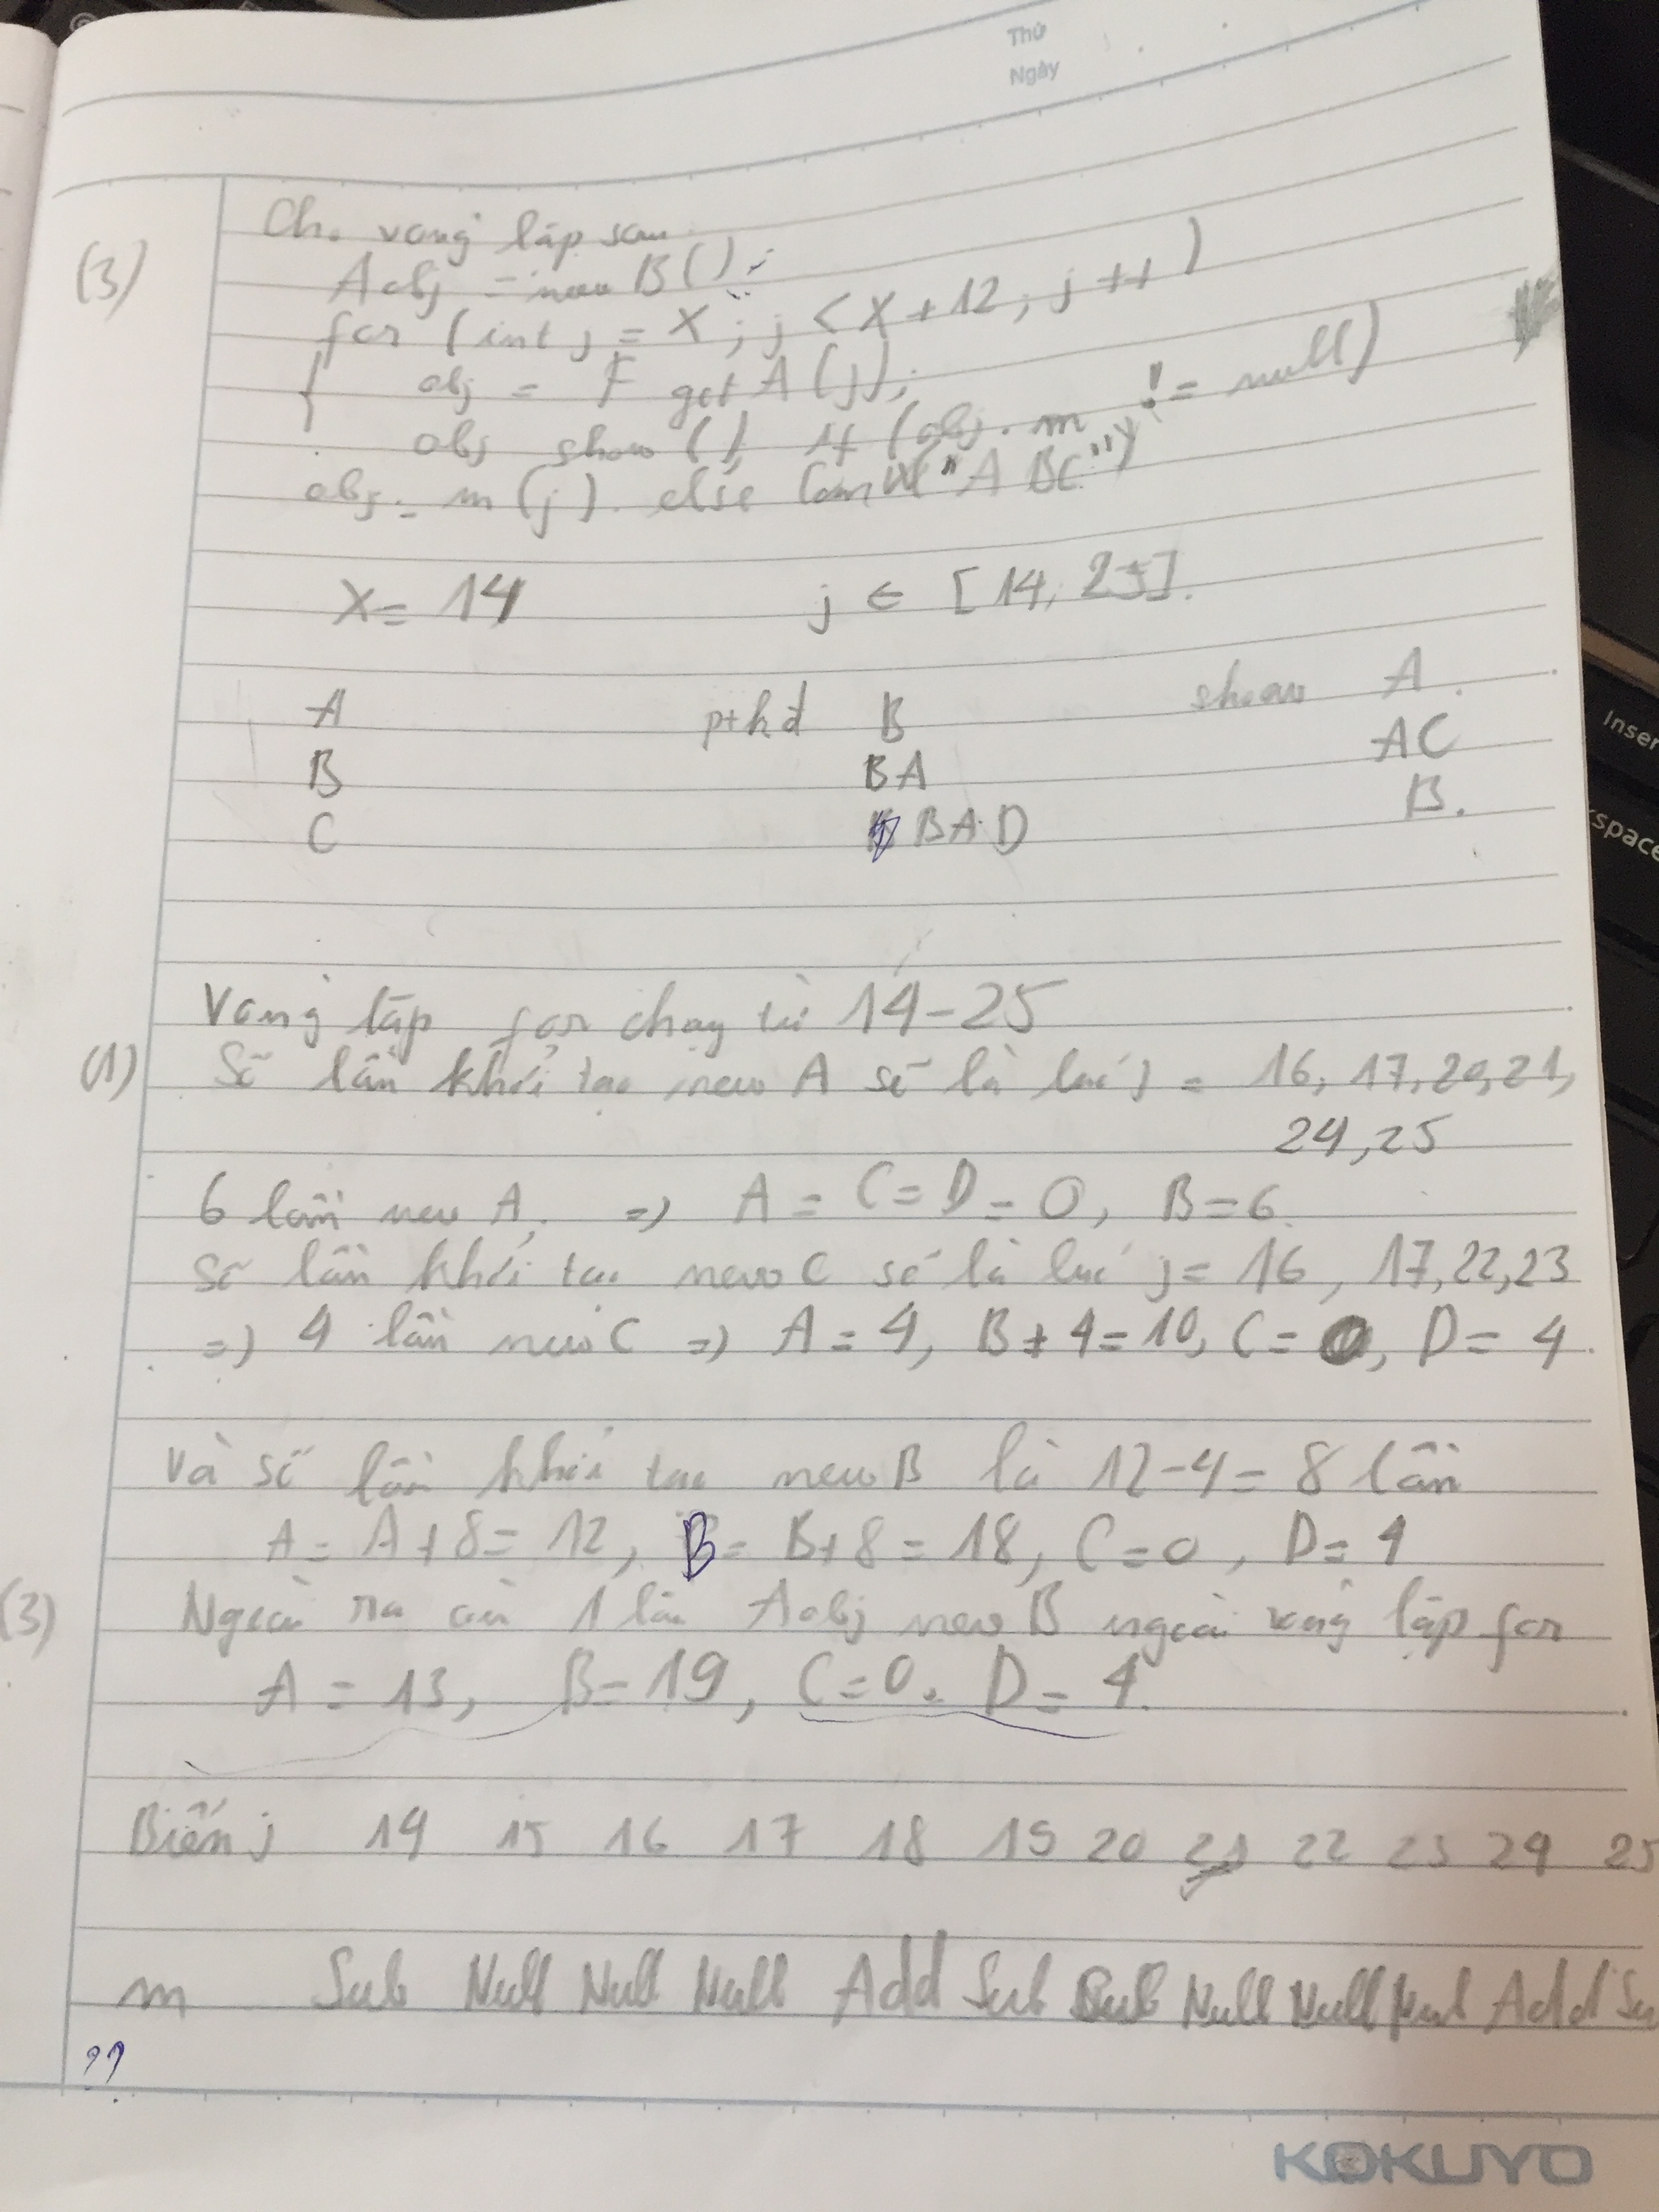 Thứ
Ngày
(3) Cho vong lặp sau
A obj = new B();
for (int j = X; j < X + 12; j++)
{ obj = F get A (j);
obj show (), if (obj. m != null)
obj. m (j). else Con W("A BC")
X = 14 j ∈ [14, 25].
A ptkđ B show A.
B BA AC
C BAD B.
Vong lặp for chạy từ 14-25
(1) Số lần khởi tạo new A sẽ là lúc j = 16, 17, 20, 21,
24, 25
6 lần new A. => A = C = D = 0, B = 6.
Số lần khởi tạo new C sẽ là lúc j = 16, 17, 22, 23
=> 4 lần new C => A = 4, B + 4 = 10, C = 0, D = 4.
Và số lần khởi tạo new B là 12-4 = 8 lần
A = A + 8 = 12, B = B + 8 = 18, C = 0, D = 4
(3) Ngoài ra còn 1 lần A obj new B ngoài vòng lặp for
A = 13, B = 19, C = 0. D = 4.
Biến j 14 15 16 17 18 19 20 21 22 23 24 25
m Sub Null Null Null Add Sub Sub Null Null Null Add Su
KOKUYO
Inser